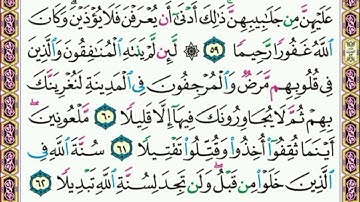 عَلَيْهِنَّ مِن جَلَٰبِيبِهِنَّۚ ذَٰلِكَ أَدْنَىٰٓ أَن يُعْرَفْنَ فَلَا يُؤْذَيْنَۗ وَكَانَ
ٱللَّهُ غَفُورٗا رَّحِيمٗا ٥٩ ۞ لَّئِن لَّمْ يَنتَهِ ٱلْمُنَٰفِقُونَ وَٱلَّذِينَ
فِي قُلُوبِهِم مَّرَضٞ وَٱلْمُرْجِفُونَ فِي ٱلْمَدِينَةِ لَنُغْرِيَنَّكَ
بِهِمْ ثُمَّ لَا يُجَاوِرُونَكَ فِيهَآ إِلَّا قَلِيلٗا ٦٠ مَّلْعُونِينَۖ
أَيْنَمَا ثُقِفُوٓا۟ أُخِذُوا۟ وَقُتِّلُوا۟ تَقْتِيلٗا ٦١ سُنَّةَ ٱللَّهِ فِي
ٱلَّذِينَ خَلَوْا۟ مِن قَبْلُۖ وَلَن تَجِدَ لِسُنَّةِ ٱللَّهِ تَبْدِيلٗا ٦٢